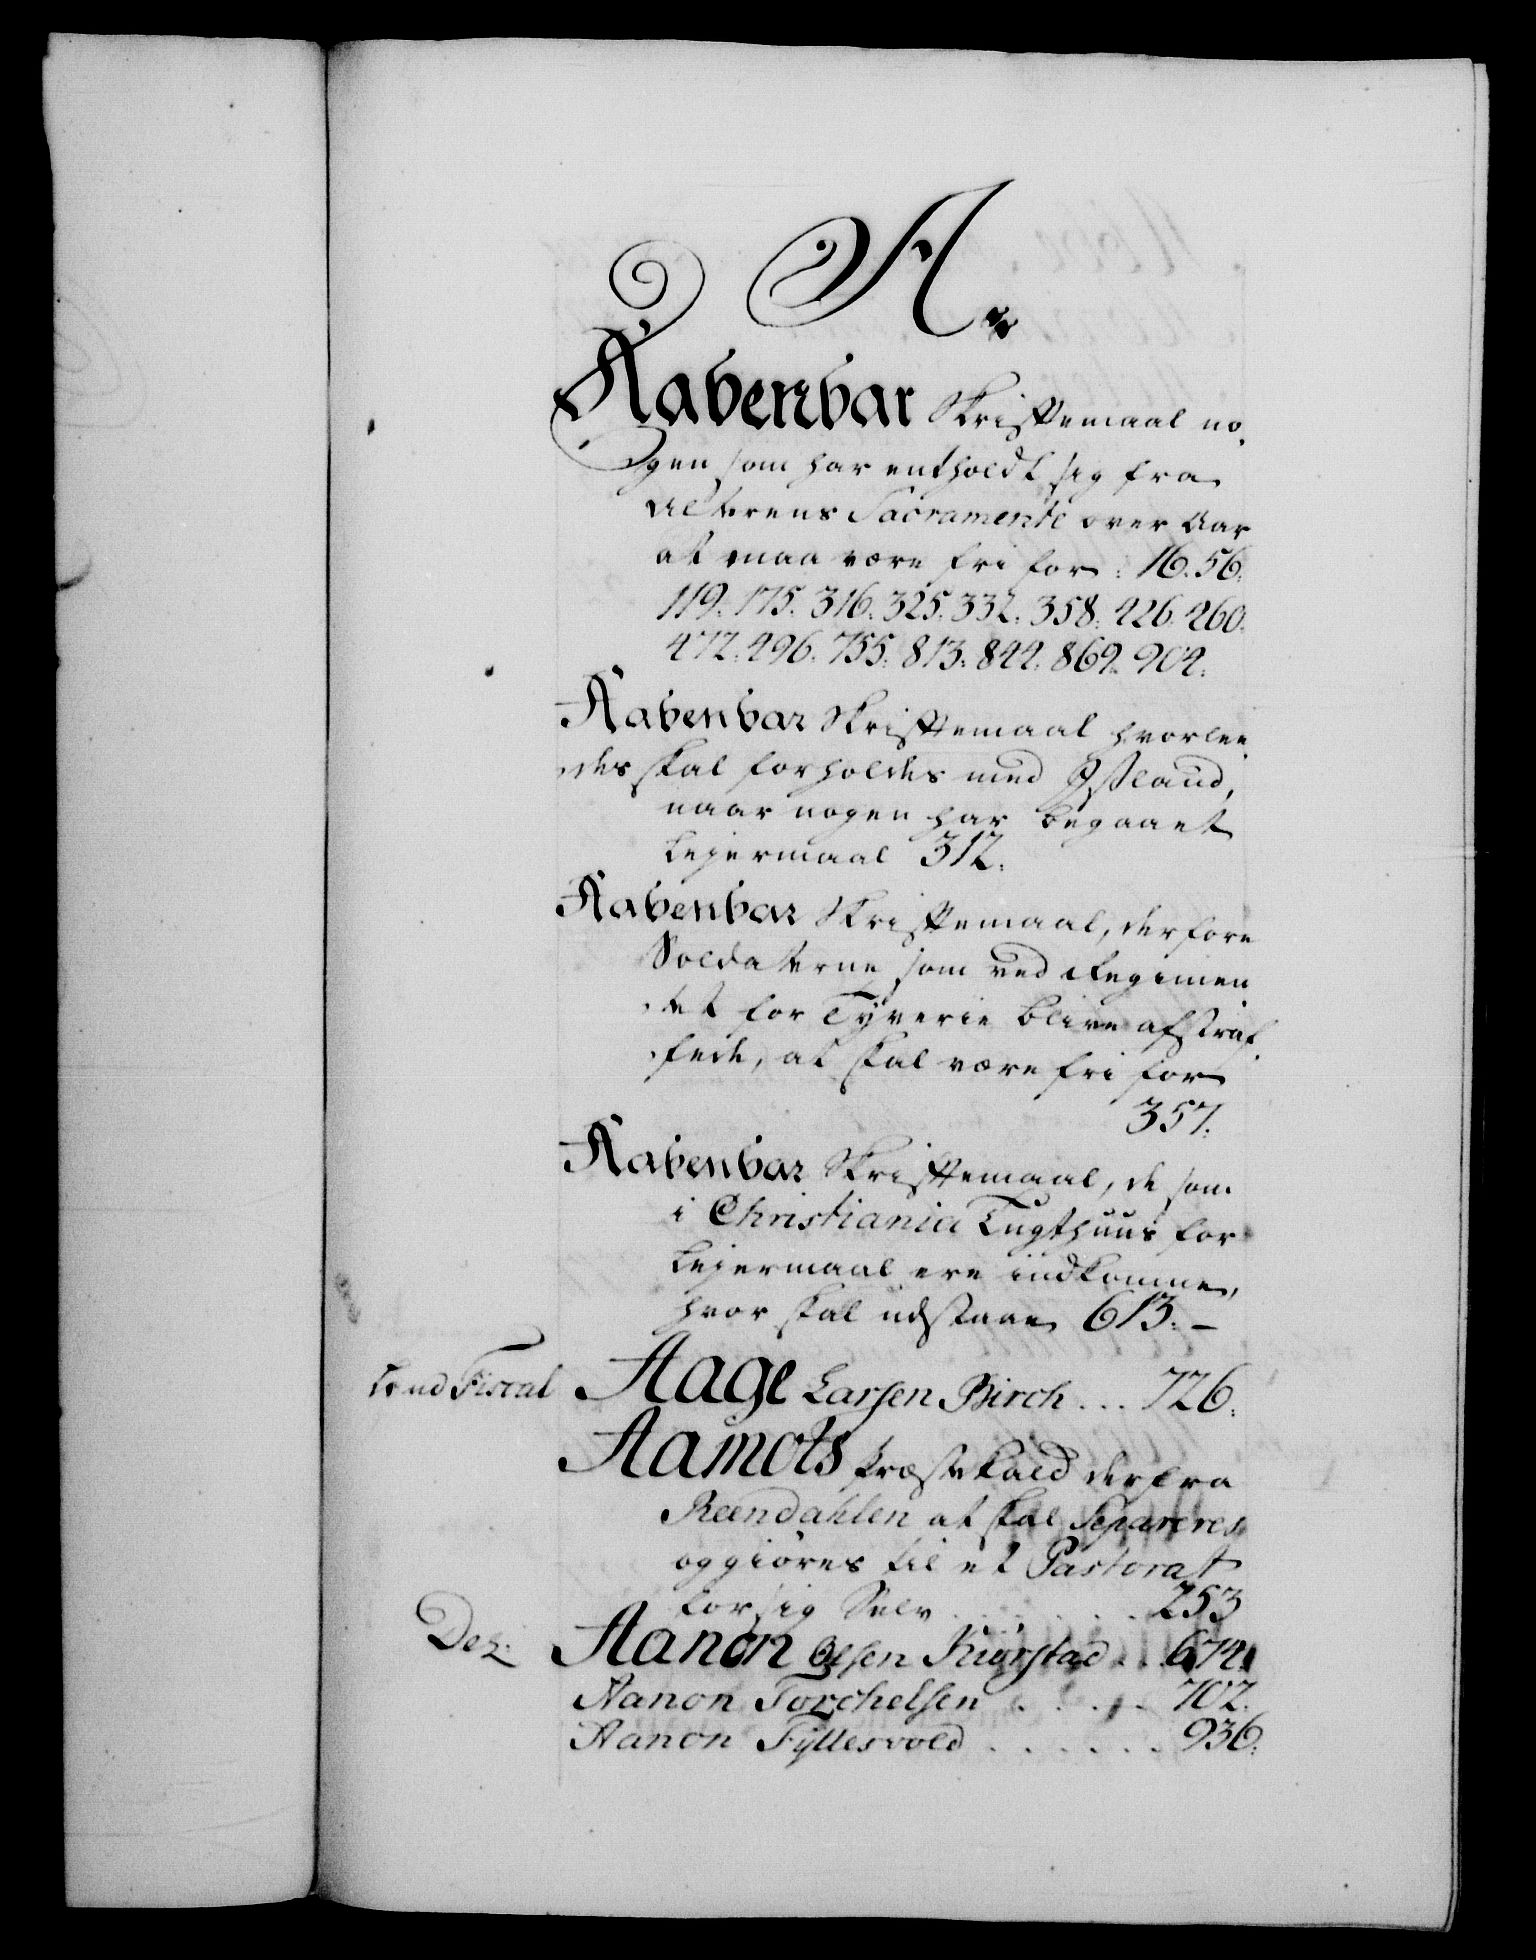 A.
Aabenbar Skriftemaal no
gen som har entholdt sig fra
Alterens Sacramente over Aar
at maa være fri for: 16. 56.
119. 175. 316. 325. 332. 358. 426. 460.
472. 496. 755. 813. 844. 869. 904.
Aabenbar Skriftemaal hvorlee
des skal forholdes med Island,
naar nogen har begaaet
Lejermaal 312.
Aabenbar Skriftemaal, derfore
Soldaterne som ved Regimen
tet for Tyverie blive afstraf
fede, at skal være fri for
357.
Aabenbar Skriftemaal, de som
i Christiania Tugthuus for
Lejermaal ere indkomne,
hvor skal udstaae 613. –
Fiscal Aage Larsen Birch ... 726.
Aamots Præstekald derfra
Reendahlen at skal Separeres
og giøres til et Pastorat
for sig Selv . . . . . 253
Aanon Olsen Kiørstad . . 674.
Aanon Torchelsen . . . . 702.
Aanon Fyllesvold . . . . . . 936.